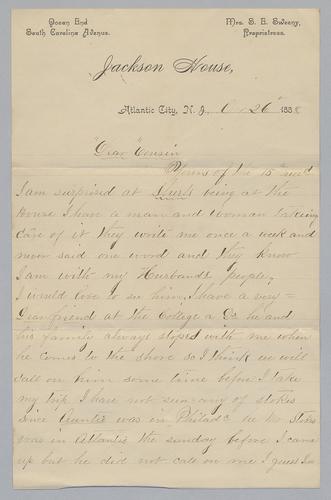 Ocean End
South Carolina Avenue.
Mrs. S. E. Sweeny,
Proprietress.
Jackson House,
Atlantic City, N. J. 26" 188
"Dear" Cousin
Yours of the 15" recd
I am surprised at being at the
House I have a man and woman taking
care of it they write me once a week and
never said one word and they know
I am with my Husbands people,
I would love to see him, I have a very =
Dear friend at the College a Dr he and
his family always stopes with me when
he comes to the shore so I think we will
call on him some time before I take
my trip I have not seen any of stokes
since Auntie was in Philada
was in Atlantic the sunday before I came
up but he did not call on me I guess